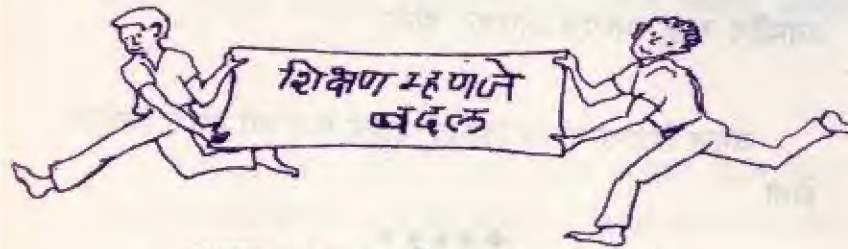 शिक्षण म्हणजे
बदल